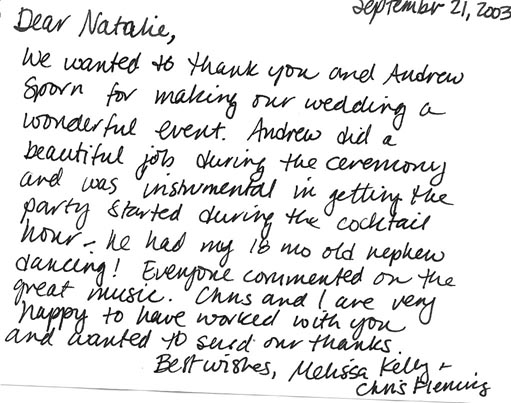 September 21, 2003
Dear Natalie,
We wanted to thank you and Andrew
Sporn for making our wedding a
wonderful event. Andrew did a
beautiful job during the ceremony
and was instrumental in getting the
party started during the cocktail
hour - he had my 18 mo old nephew
dancing! Everyone commented on the
great music. Chris and I are very
happy to have worked with you
and wanted to send our thanks
Best wishes, Melissa Kelly +
Chris Fleming